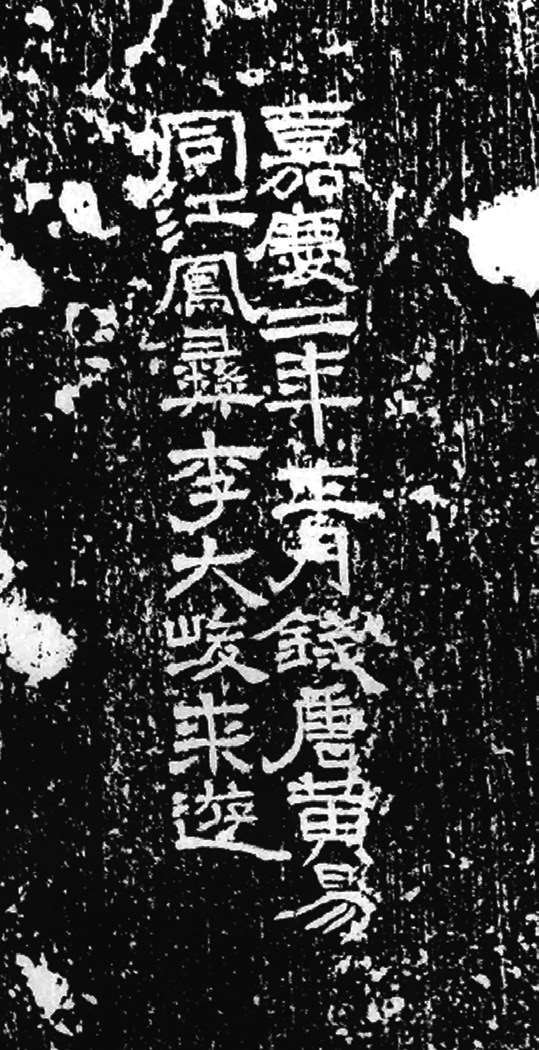 嘉慶二年正月錢唐黃易
同江鳳彝李大峻來遊